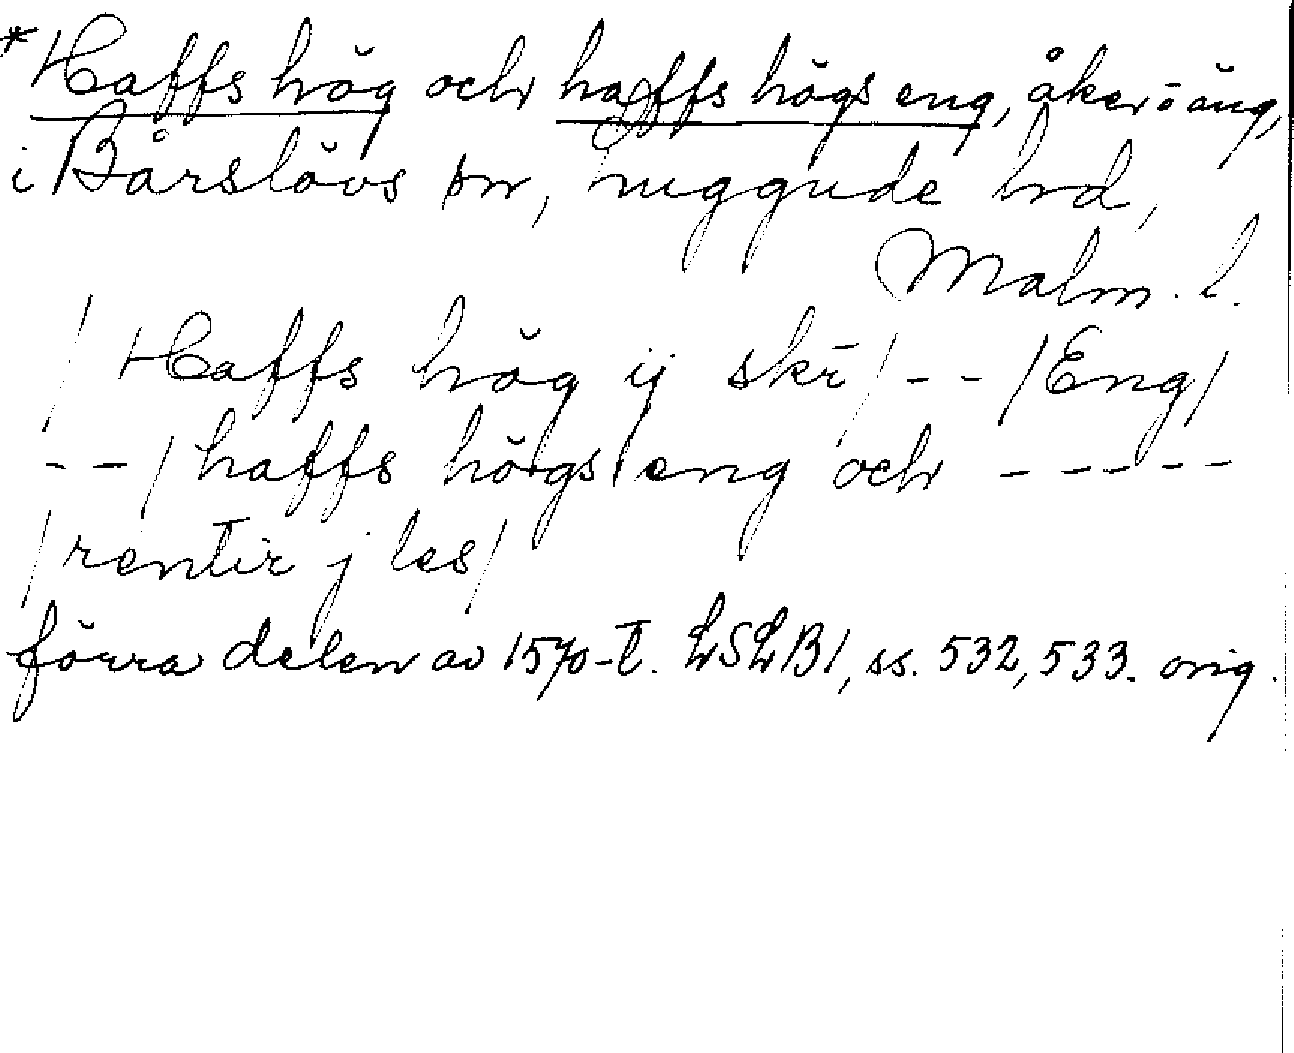 *Haffs hög och haffs högs eng, åker o äng,
i Bårslövs sn, Luggude hd,
Malm. l.
/ Haffs hög ij skr̄ / - - / Eng /
- - / haffs högs / eng och - - - - -
/ rentir j les /
förra delen av 1570-t. LSLB1, ss. 532, 533. orig.